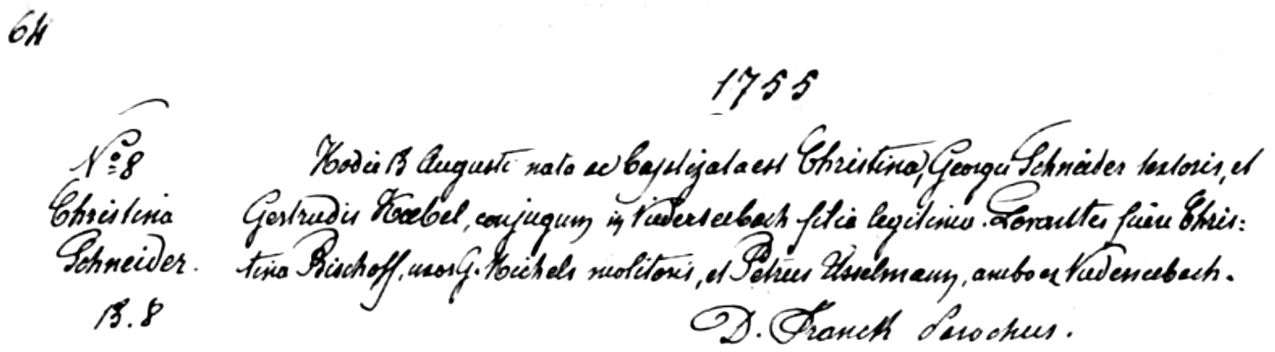 64
1755
Nº 8
Christina
Schneider.
13. 8
Hodie 13 Augusti nata ac baptizata est Christina, Georgii Schneider textoris, et
Gertrudis Hæbel, conjugum in Niederseebach filia legitima. Levantes fuere Chris:
tina Bischoff, uxor G. Michels molitoris, et Petrus Usselmann, ambo ex Niederseebach.
D. Franck Parochus.